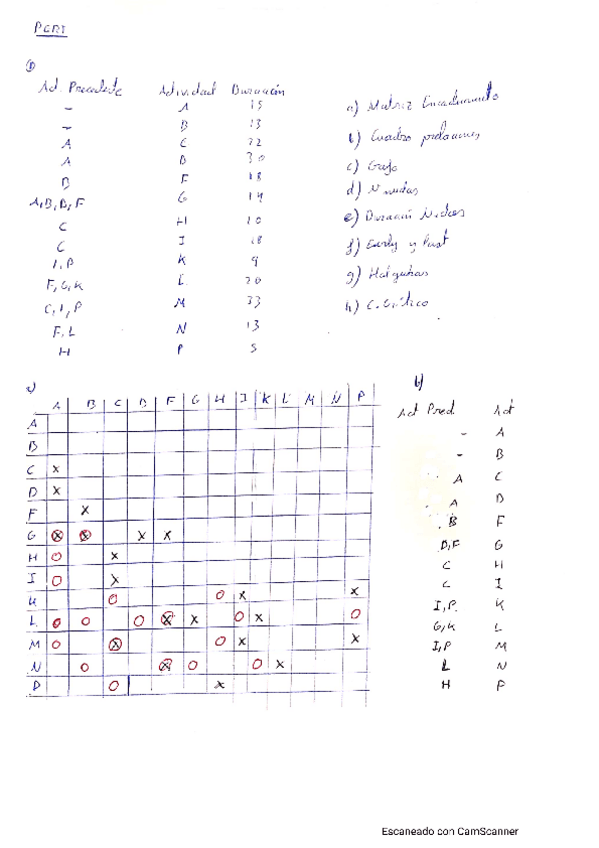 PERT
1)
Act. Precedente Actividad Duración
- A 15
- B 13
A C 22
A D 30
B F 18
A,B,D,F G 14
C H 10
C I 18
I,P K 9
F,G,K L 20
C,I,P M 33
F,L N 13
H P 5
a) Matriz Encadenamiento
b) Cuadro prelaciones
c) Grafo
d) N nudos
e) Duración Nudos
f) Early y Last
g) Holguras
h) C. Crítico
a)
A B C D F G H I K L M N P
A
B
C x
D x
F x
G ⊗ ⊗ x x
H o x
I o x
K o o x x
L o o o ⊗ x o x o
M o ⊗ o x x
N o ⊗ o o x
P o x
b)
Act Pred Act
- A
- B
A C
A D
B F
D,F G
C H
C I
I,P. K
G,K L
I,P M
L N
H P
Escaneado con CamScanner